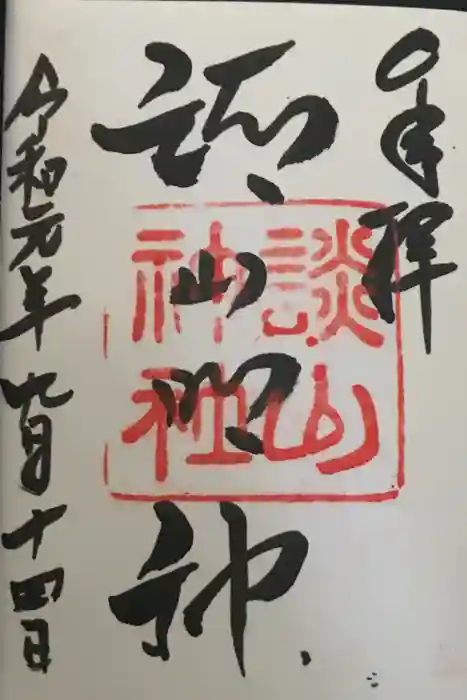 奉拝
談山明神
談山
神社
令和元年九月十四日